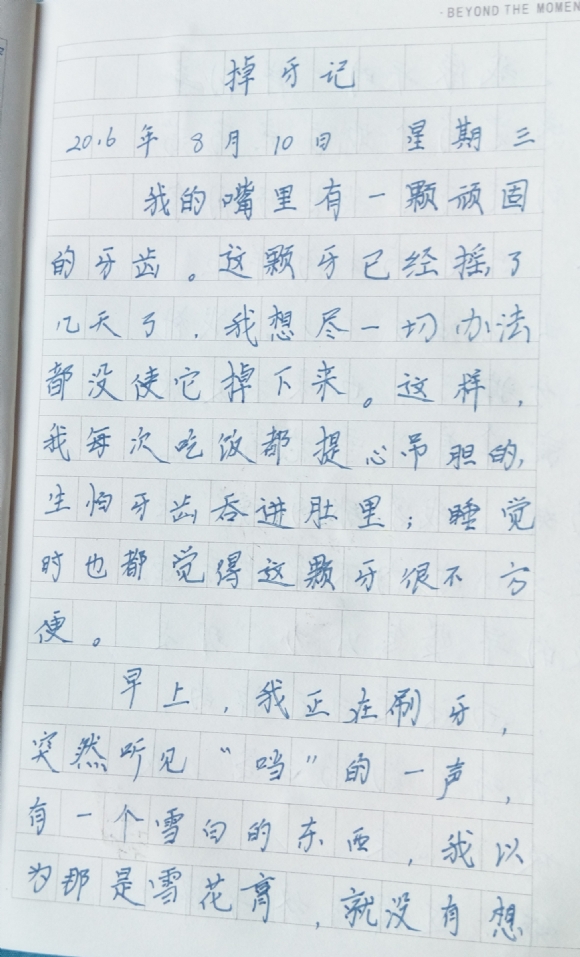 ·BEYOND THE MOMEN
掉牙记
2016年8月10日 星期三
我的嘴里有一颗顽固
的牙齿。这颗牙已经摇了
几天了，我想尽一切办法
都没使它掉下来。这样，
我每次吃饭都提心吊胆的，
生怕牙齿吞进肚里；睡觉
时也都觉得这颗牙很不方
便。
早上，我正在刷牙，
突然听见“哐”的一声，
有一个雪白的东西，我以
为那是雪花膏，就没有想